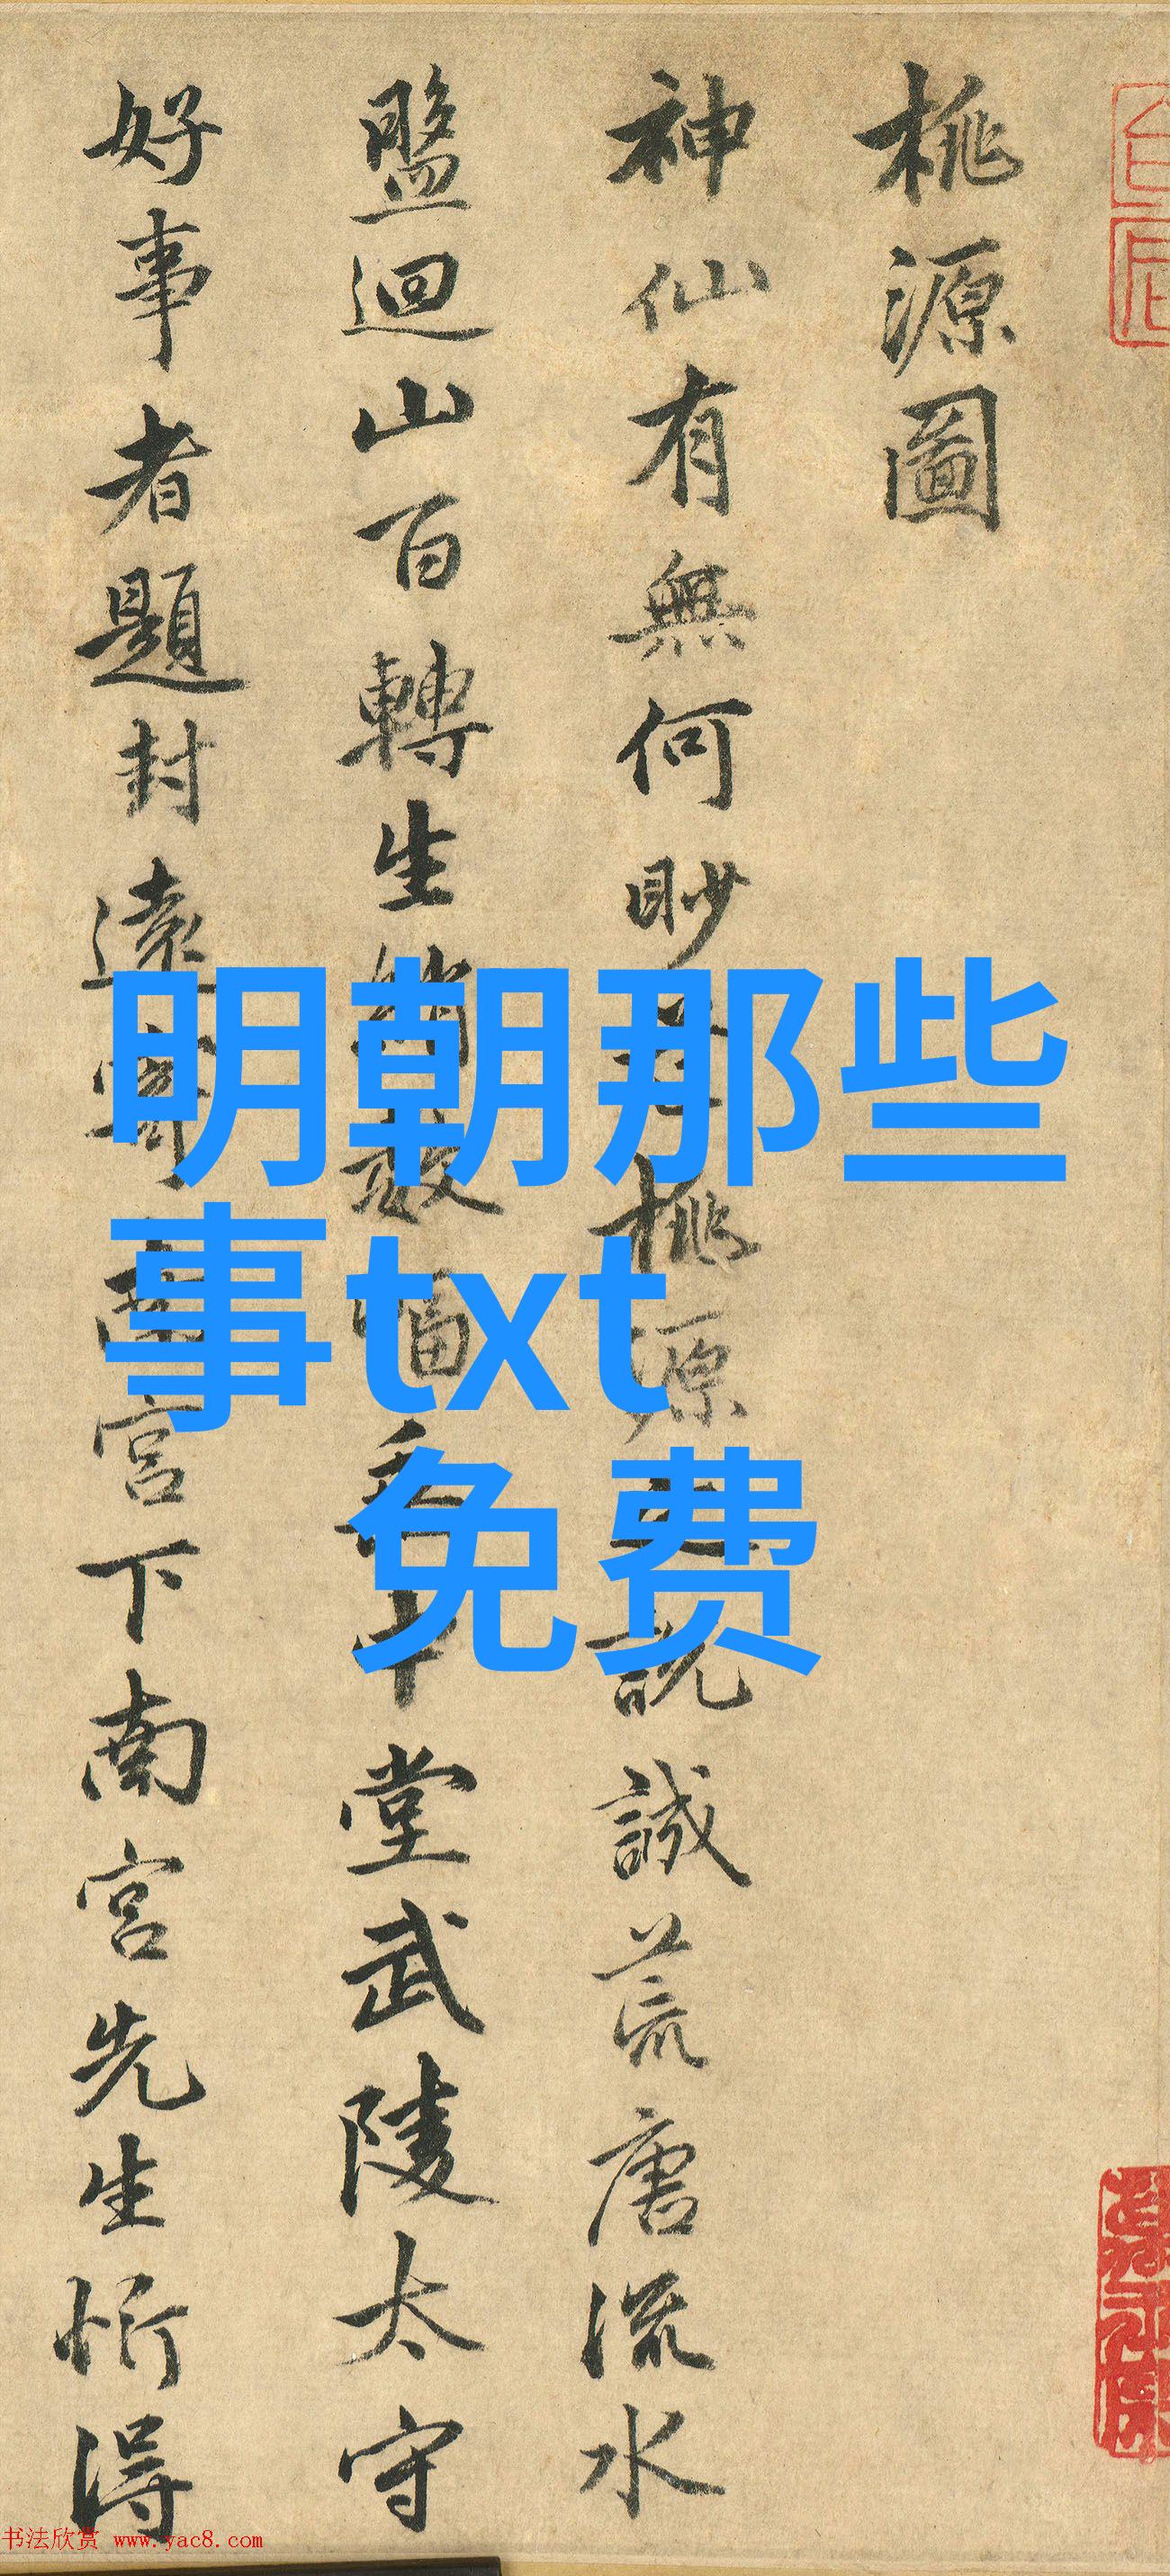 桃源圖
神仙有無何眇芒桃源之說誠荒唐流水
盤迴山百轉生綃數幅垂中堂武陵太守
好事者題封遠寄南宮下南宮先生忻得
明朝那些
事txt
免费
书法欣赏 www.yac8.com